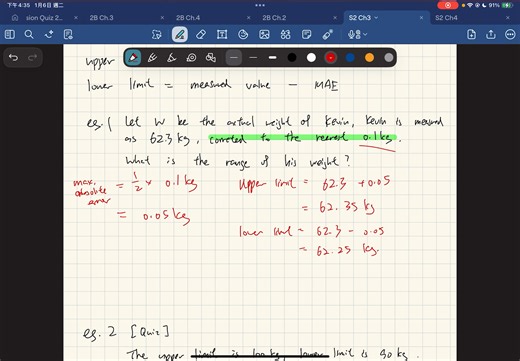 下午4:35 1月6日 週二
91%
sion Quiz 2... 2B Ch.3 2B Ch.4 2B Ch.2 S2 Ch3 S2 Ch4
upper
lower limit = measured value - MAE
eg. 1 Let W be the actual weight of Kevin, Kevin is measured
as 62.3 kg, corrected to the nearest 0.1 kg.
What is the range of his weight?
max. absolute error = 1/2 x 0.1 kg
= 0.05 kg
Upper limit = 62.3 + 0.05
= 62.35 kg
lower limit = 62.3 - 0.05
= 62.25 kg.
eg. 2 [Quiz]
The upper limit is 100 kg, lower limit is 90 kg.